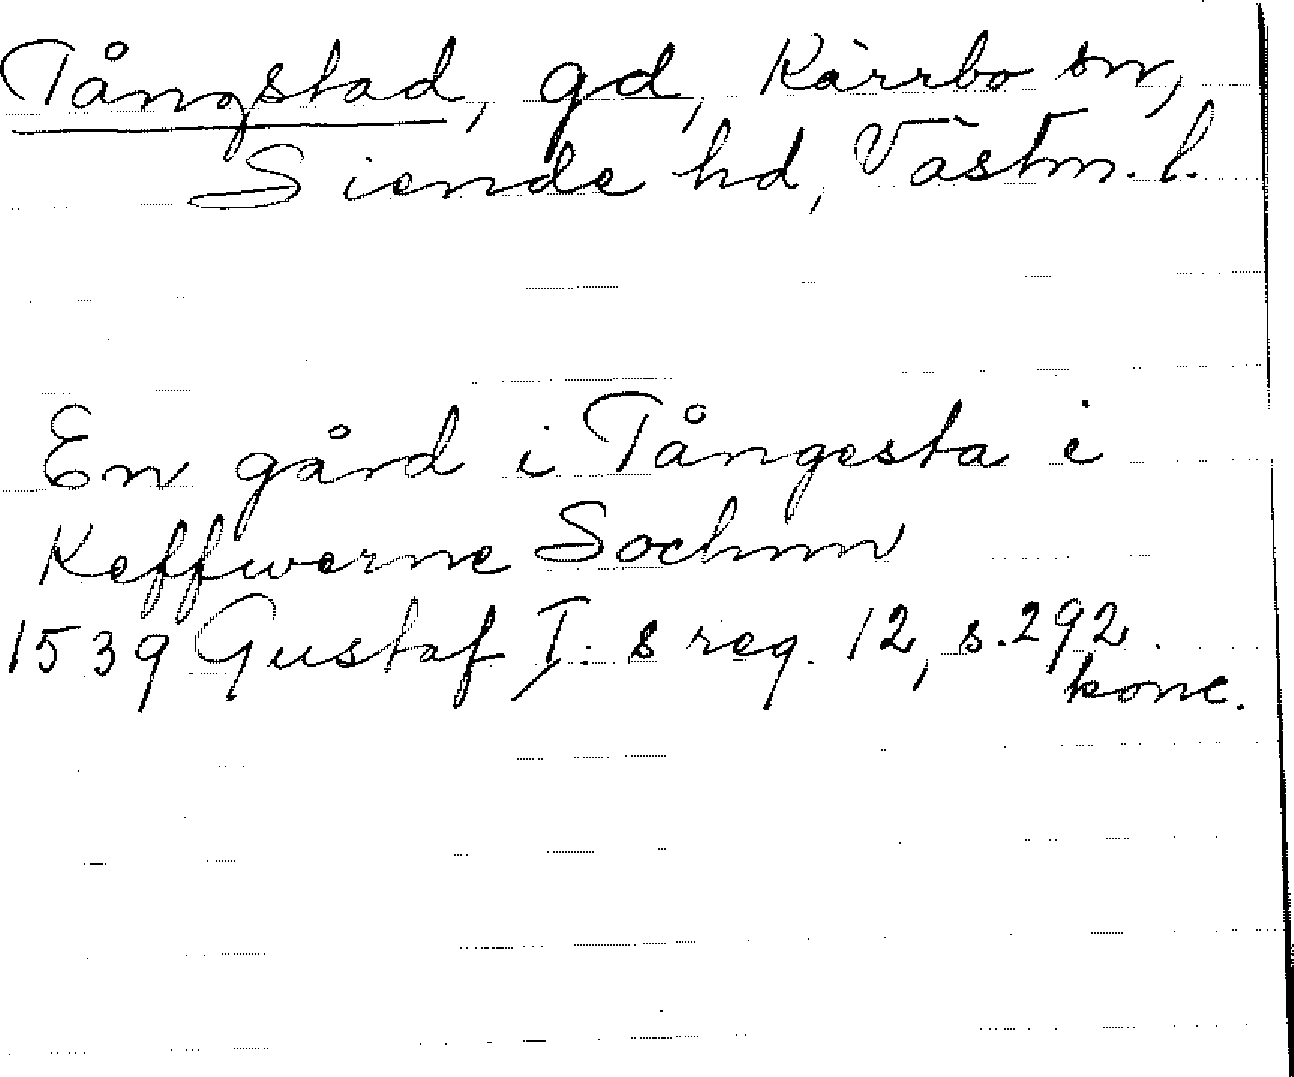 Tångstad, gd, Kärrbo sn,
Siende hd, Västm. l.
En gård i Tångesta i
Keffwerne Sochnn
1539 Gustaf I:s reg. 12, s. 292.
konc.